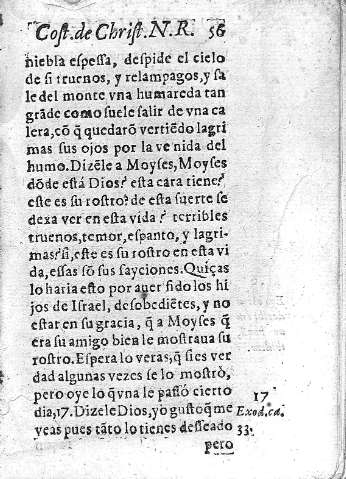 Cost. de Christ. N. R. 56
niebla espessa, despide el cielo
de si truenos, y relampagos, y sa
le del monte vna humareda tan
grãde como suele salir de vna ca
lera, cõ q̃ quedarõ vertiẽdo lagri
mas sus ojos por la venida del
humo. Dizẽle a Moyses, Moyses
dõde está Dios? esta cara tiene?
este es su rostro? de esta suerte se
dexa ver en esta vida? terribles
truenos, temor, espanto, y lagri-
mas? si, este es su rostro en esta vi
da, essas sõ sus fayciones. Quiças
lo haria esto por auer sido los hi
jos de Israel, desobediẽtes, y no
estar en su gracia, q̃ a Moyses q̃
era su amigo bien le mostraua su
rostro. Espera lo veras, q̃ si es ver
dad algunas vezes se lo mostrò,
pero oye lo q̃ vna le passó cierto
dia, 17. Dizele Dios, yo gusto q̃ me
veas pues tãto lo tienes desseado
17
Exod. ca.
33.
pero